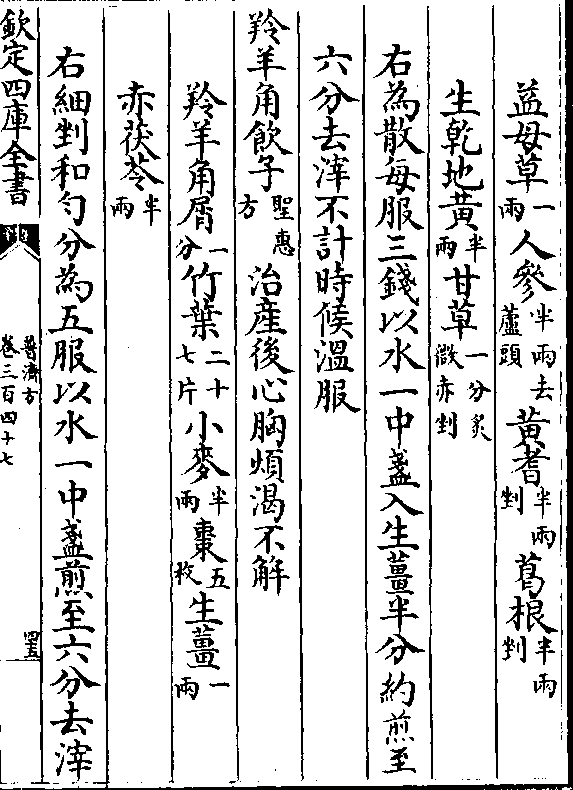 益母草一兩人參半兩去蘆頭黃耆半兩剉葛根半兩剉
生乾地黃半兩甘草一分炙微赤剉
右為散每服三錢以水一中盞入生薑半分約煎至
六分去滓不計時候溫服
羚羊角飲子聖惠方治産後心胸煩渴不解
羚羊角屑一分竹葉二十七片小麥半兩棗五枚生薑一兩
赤茯苓半兩
右細剉和勻分為五服以水一中盞煎至六分去滓
欽定四庫全書
普濟方
卷三百四十七
四五